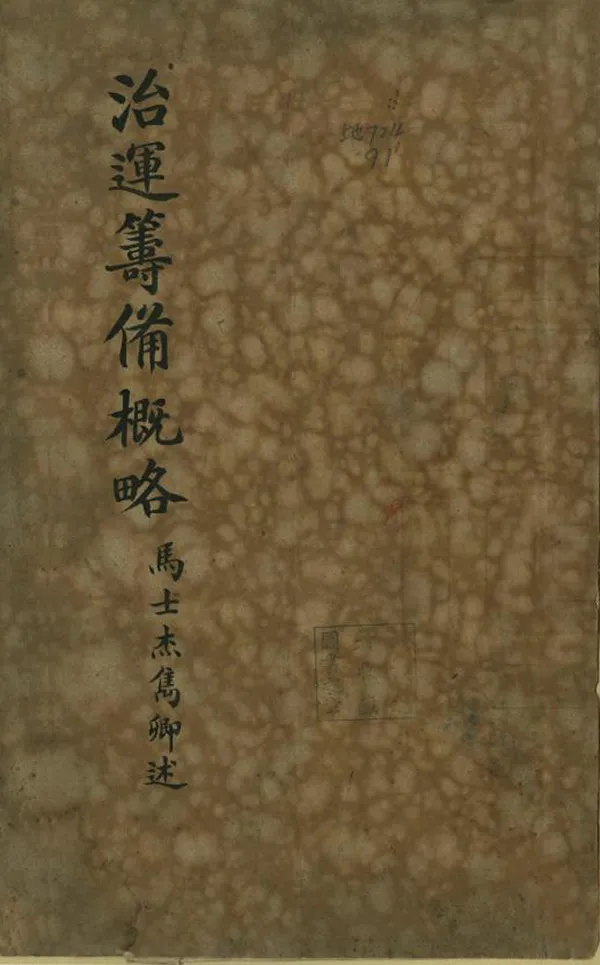 治運籌備概略
馬士杰雋卿述
地724
91